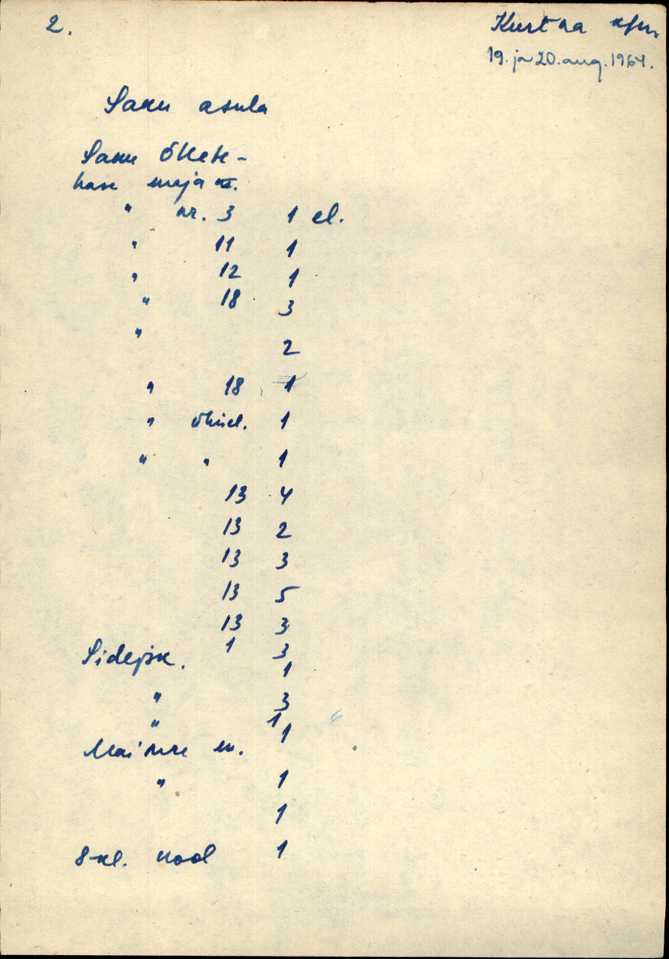 2.
Kurtna
19. ja 20. aug. 1964.
Saku asula
Saku Õlleteh-
hase maja
" nr. 3 1 el.
" 11 1
" 12 1
" 18 3
" 2
" 18 1
" 1
" " 1
13 4
13 2
13 3
13 5
13 3
1 3
Sidejsk. 1
" 3
" 1
m. 1
" 1
1
8-kl. kool 1